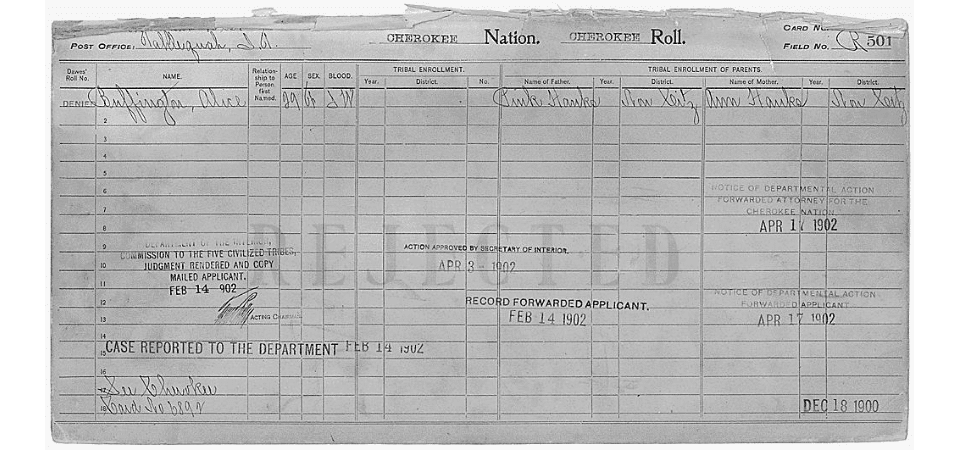 CARD No.
POST OFFICE: Tahlequah, I.T. CHEROKEE Nation. CHEROKEE Roll. FIELD No. R 501
Dawes' Roll No. NAME. Relationship to Person first Named. AGE SEX. BLOOD. TRIBAL ENROLLMENT. TRIBAL ENROLLMENT OF PARENTS.
Year. District. No. Name of Father. Year. District. Name of Mother. Year. District.
DENIED Buffington, Alice 29 I W Pink Hanks Non Citz Ann Hanks Non Citz
2
3
4
5
6 NOTICE OF DEPARTMENTAL ACTION
FORWARDED ATTORNEY FOR THE
7 CHEROKEE NATION
8 APR 17 1902
REJECTED
DEPARTMENT OF THE INTERIOR,
9 COMMISSION TO THE FIVE CIVILIZED TRIBES, ACTION APPROVED BY SECRETARY OF INTERIOR.
10 JUDGMENT RENDERED AND COPY APR 3 - 1902
MAILED APPLICANT.
11 FEB 14 902 NOTICE OF DEPARTMENTAL ACTION
12 RECORD FORWARDED APPLICANT. FORWARDED APPLICANT
13 ACTING CHAIRMAN FEB 14 1902 APR 17 1902
14
15 CASE REPORTED TO THE DEPARTMENT FEB 14 1902
16
17 See Cherokee
18 Card No 6892 DEC 18 1900